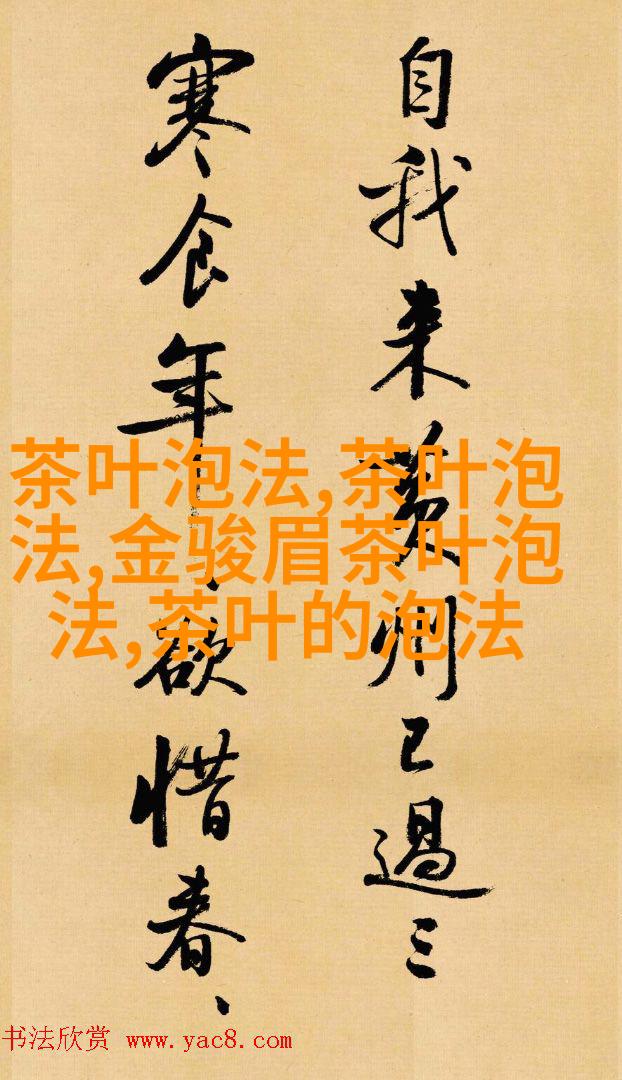 自我来黄州已過三
寒食年〻欲惜春〻
茶叶泡法,茶叶泡
法,金骏眉茶叶泡
法,茶叶的泡法
书法欣赏 www.yac8.com